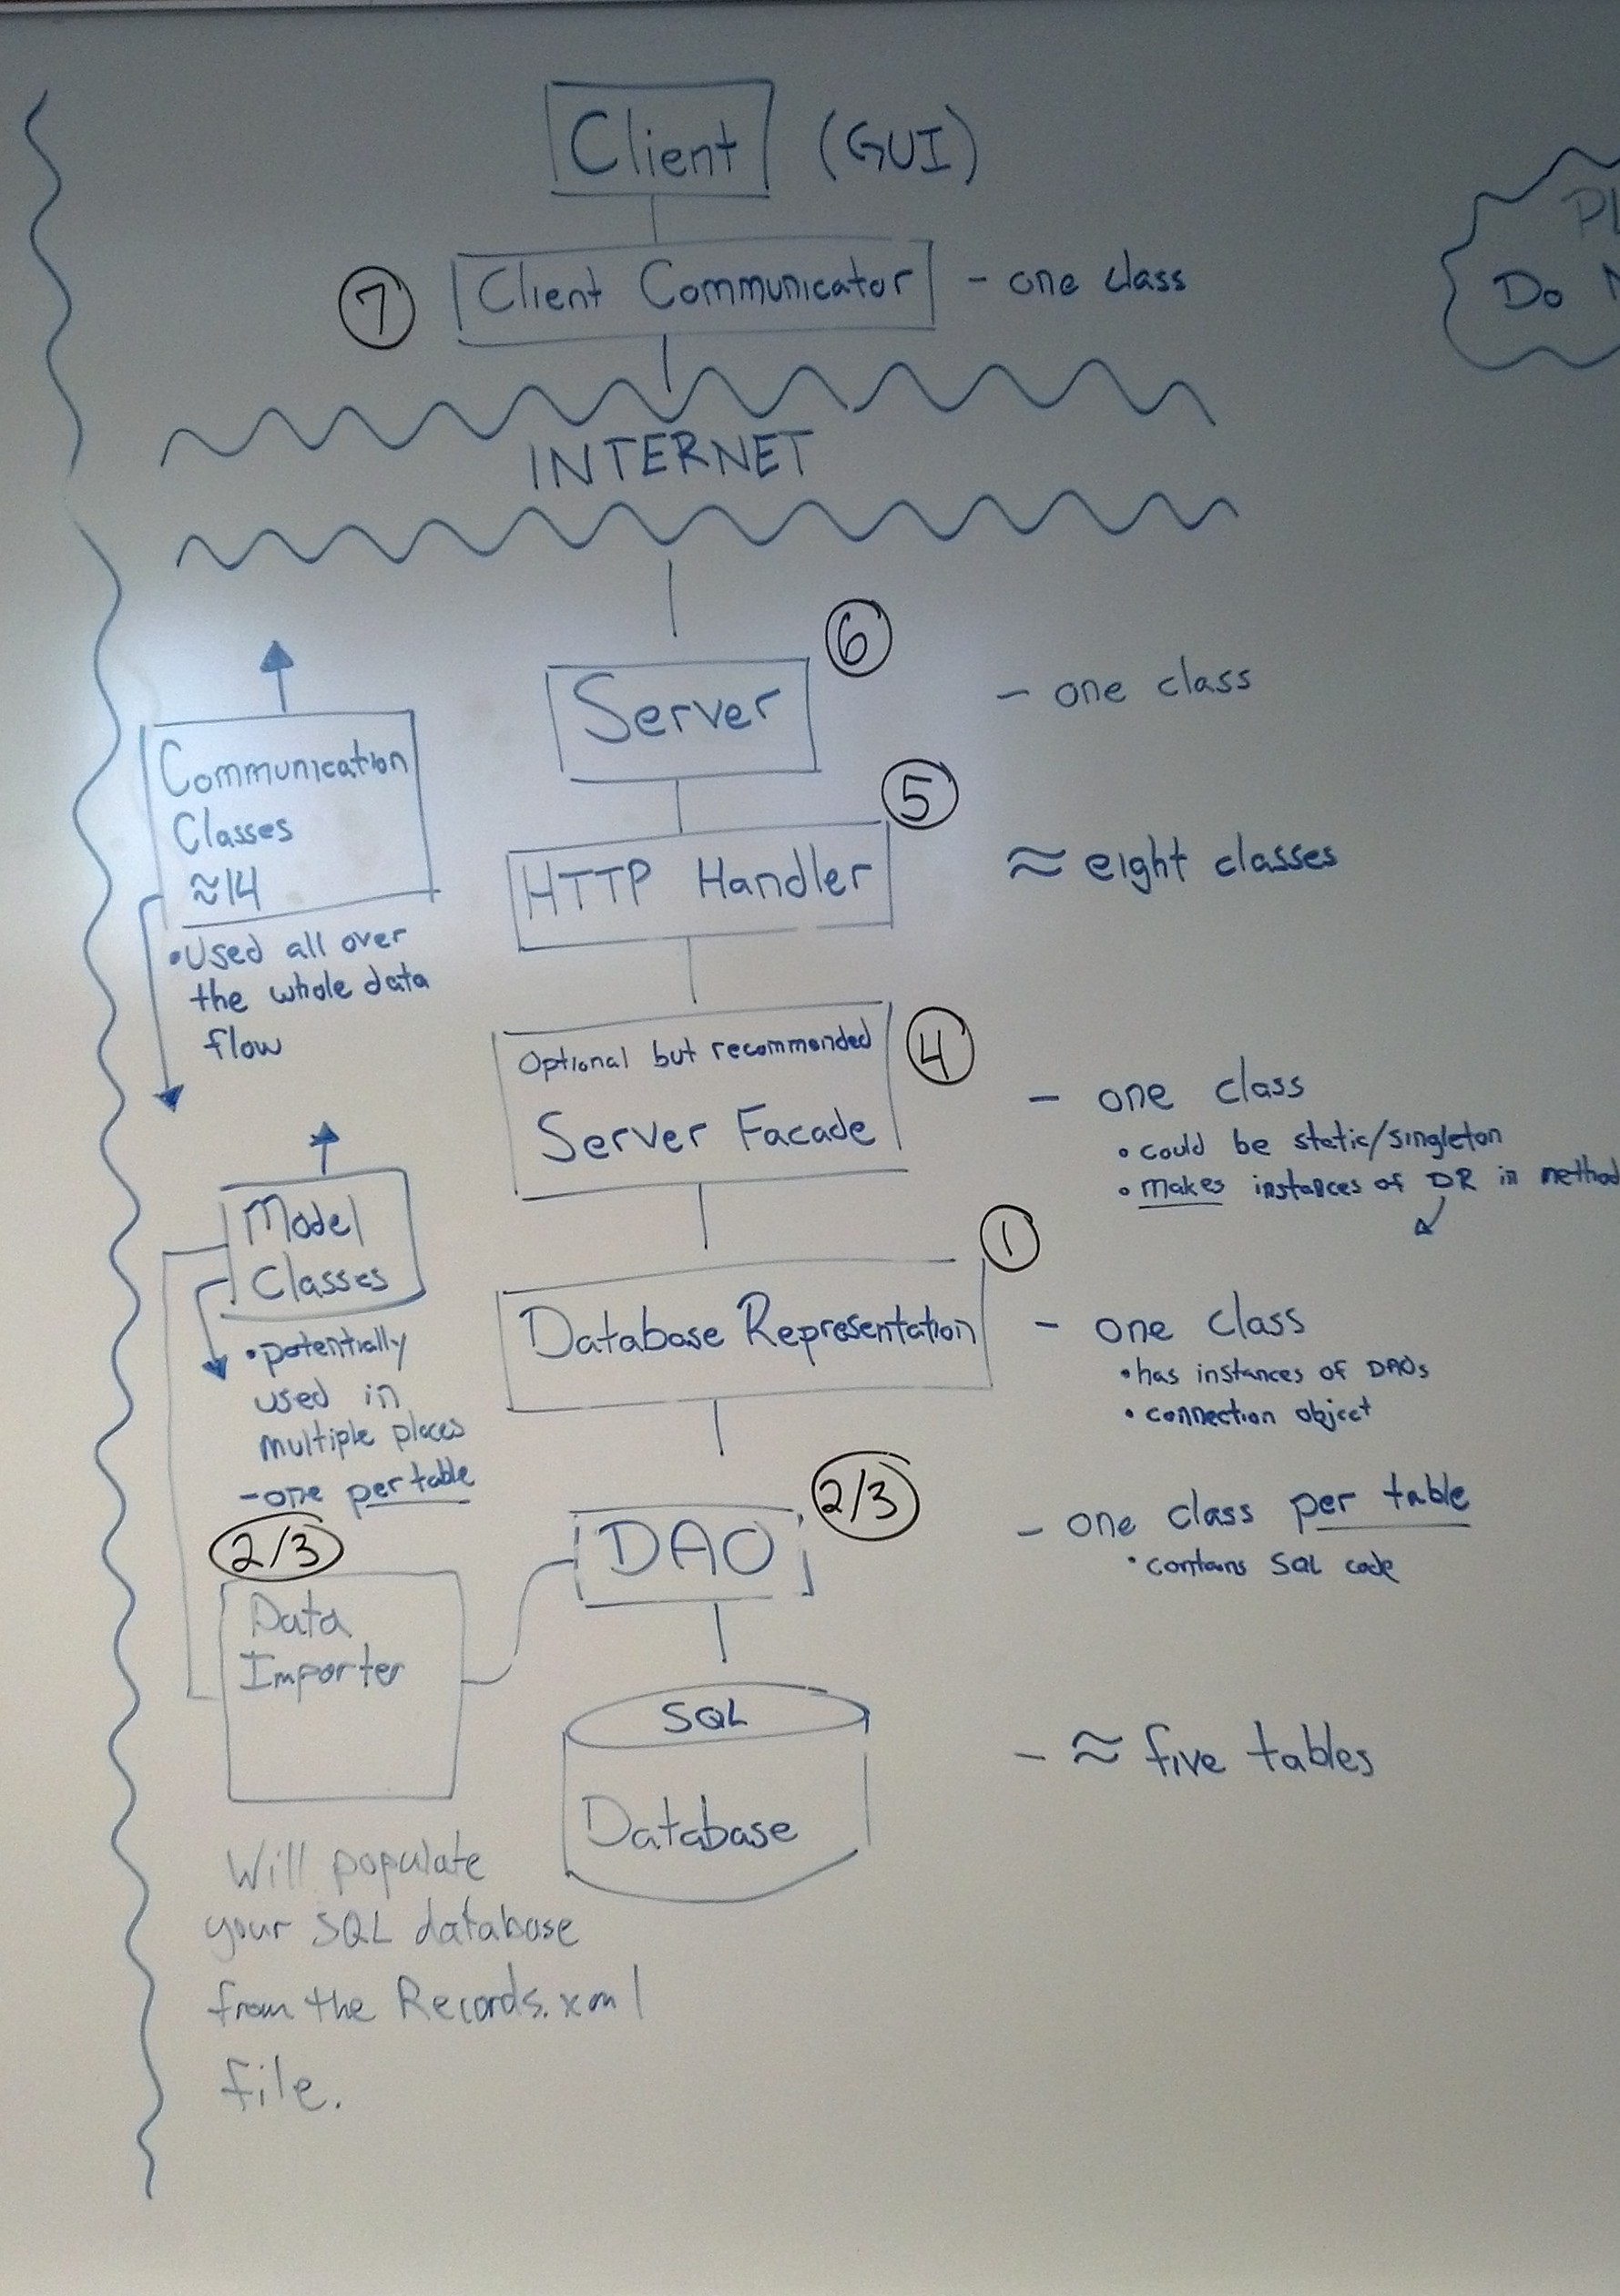 Client (GUI)
7 Client Communicator - one class
INTERNET
6
Server - one class
5
HTTP Handler ≈ eight classes
Communication
Classes
≈14
•Used all over
the whole data
flow
4
Optional but recommended
Server Facade
- one class
• could be static/singleton
• makes instances of DR in method
Model
Classes
• potentially
used in
multiple places
- one per table
1
Database Representation
- one class
• has instances of DAOs
• connection object
2/3
DAO
- one class per table
• contains SQL code
2/3
Data
Importer
SQL
Database
- ≈ five tables
Will populate
your SQL database
from the Records.xml
file.
Do